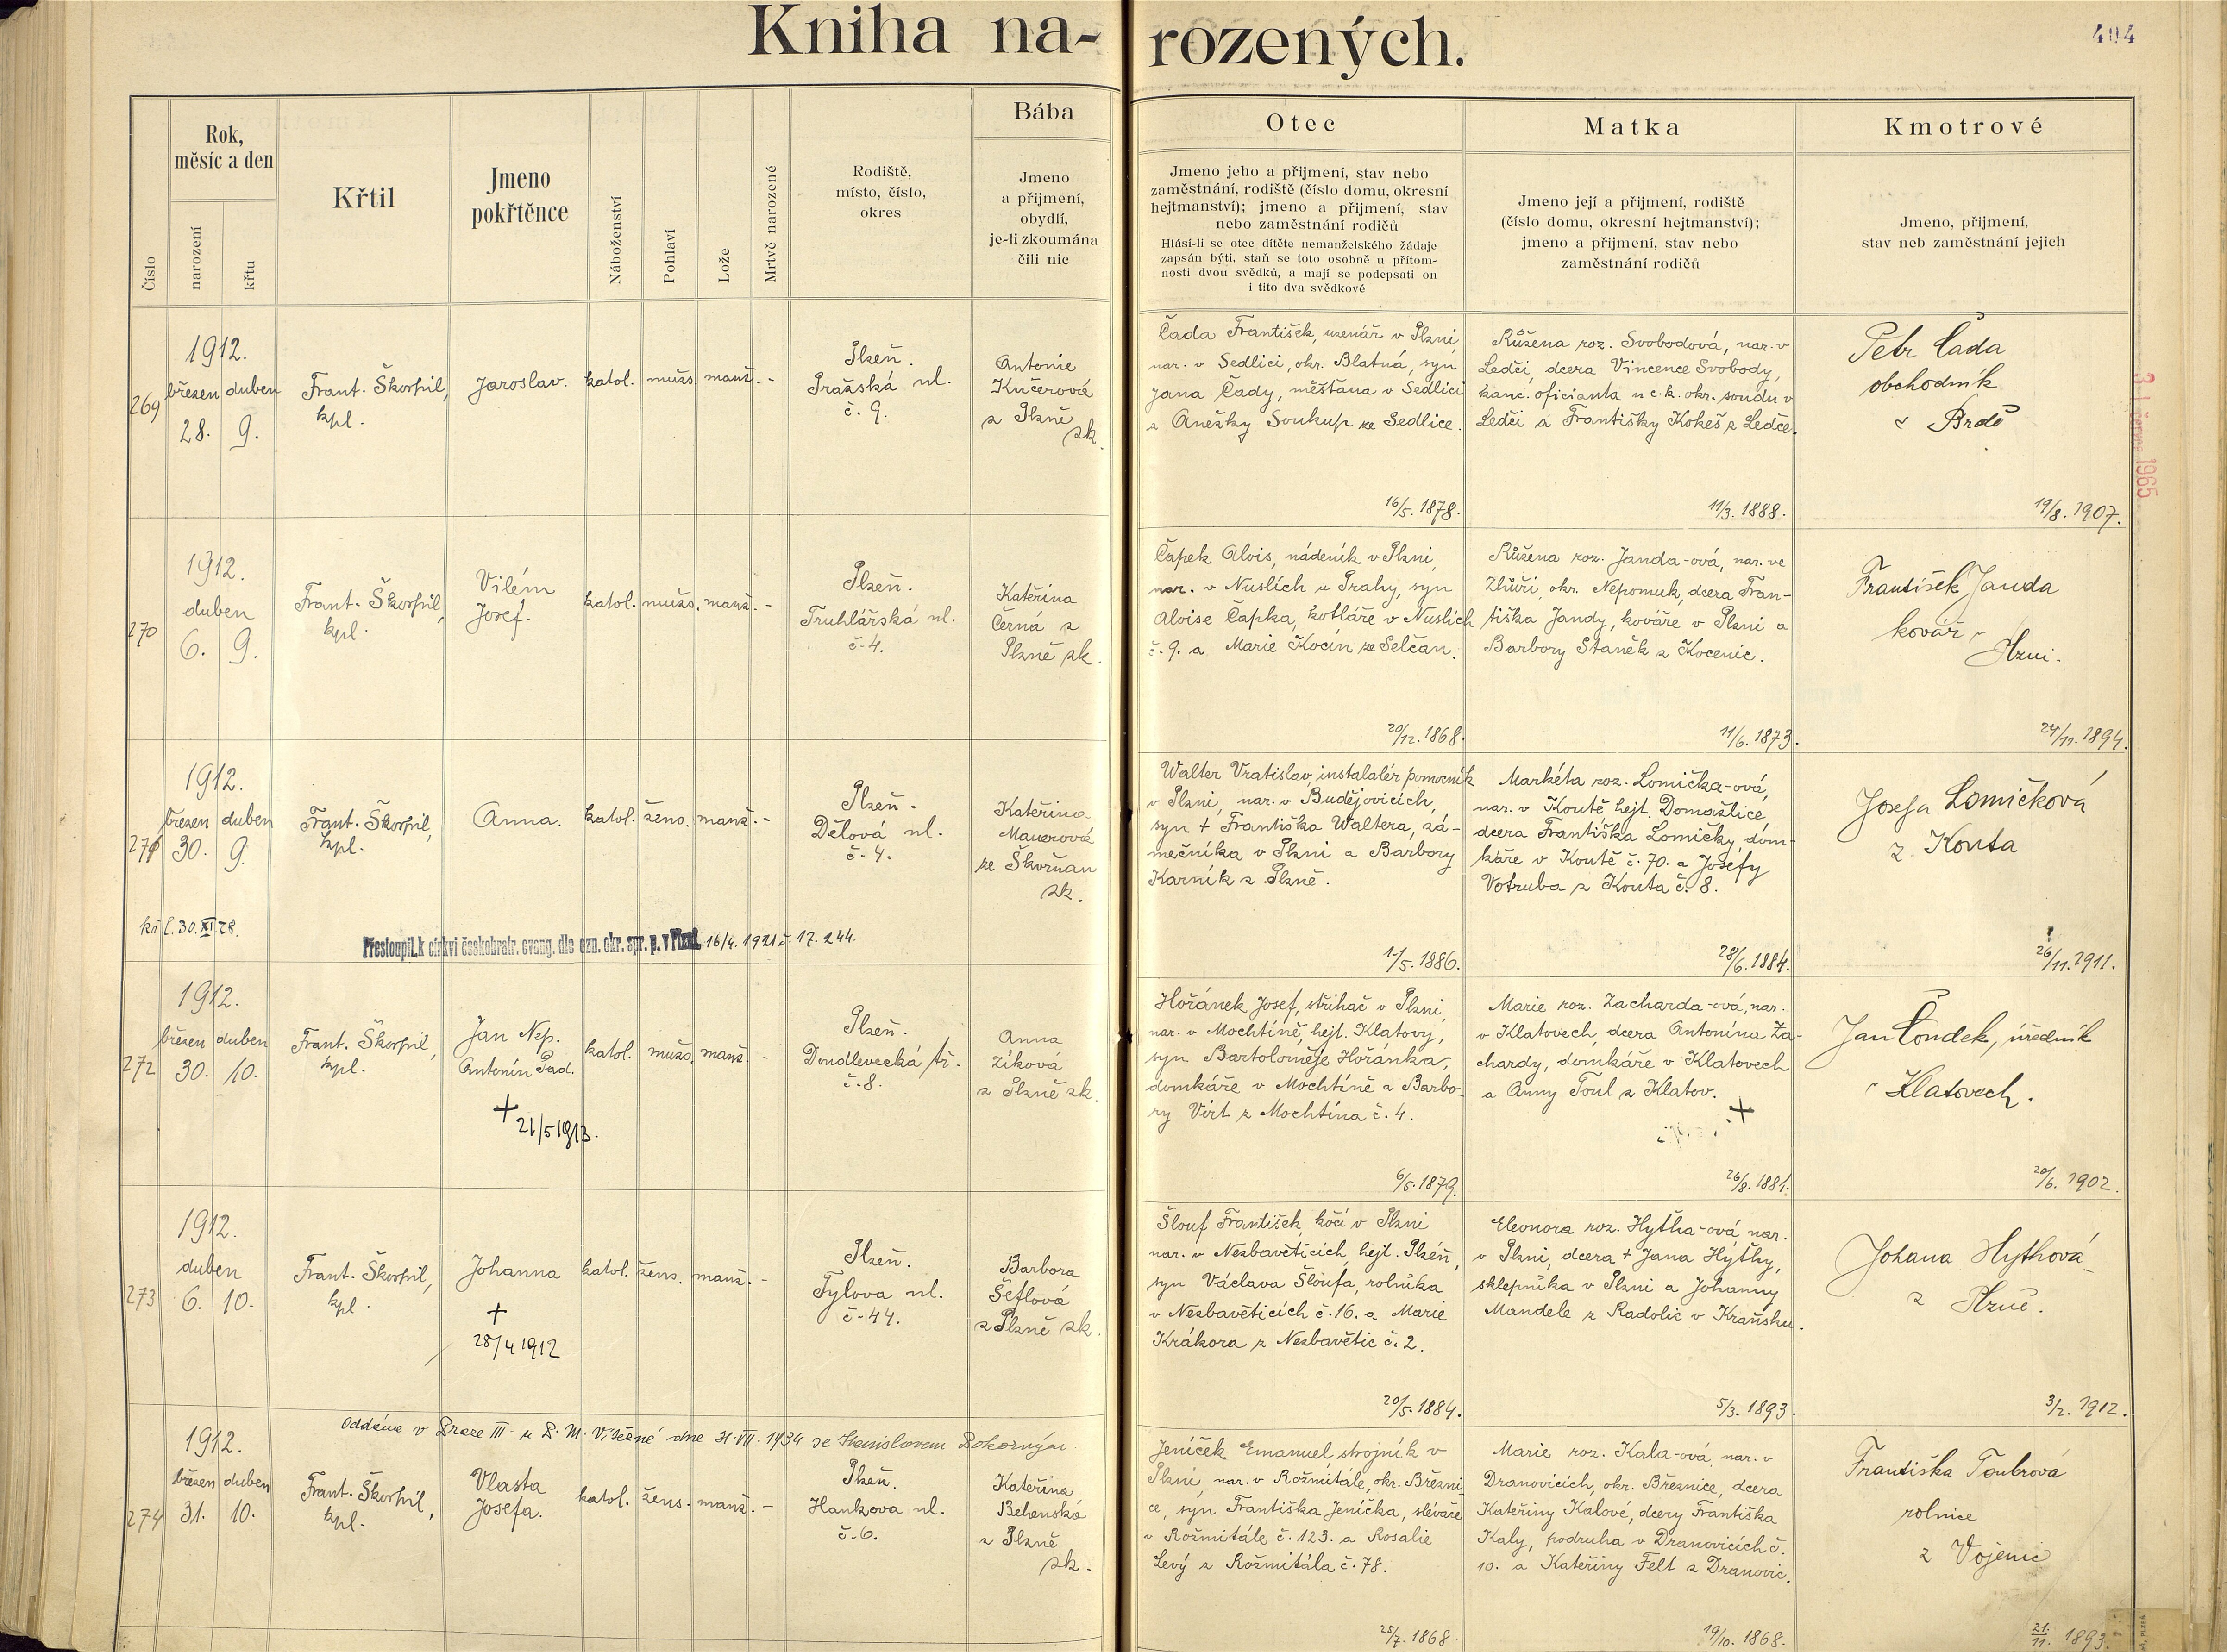 Kniha narozených.
404
Číslo
Rok,
měsíc a den
narození
křtu
Křtil
Jmeno
pokřtěnce
Náboženství
Pohlaví
Lože
Mrtvě narozené
Rodiště,
místo, číslo,
okres
Bába
Jmeno
a přijmení,
obydlí,
je-li zkoumána
čili nic
Otec
Jmeno jeho a přijmení, stav nebo
zaměstnání, rodiště (číslo domu, okresní
hejtmanství); jmeno a přijmení, stav
nebo zaměstnání rodičů
Hlásí-li se otec dítěte nemanželského žádaje
zapsán býti, staň se toto osobně u přítom-
nosti dvou svědků, a mají se podepsati on
i tito dva svědkové
Matka
Jmeno její a přijmení, rodiště
(číslo domu, okresní hejtmanství);
jmeno a přijmení, stav nebo
zaměstnání rodičů
Kmotrové
Jmeno, přijmení,
stav neb zaměstnání jejich
269
1912.
březen duben
28. 9.
Frant. Škorpil,
kpl.
Jaroslav.
katol.
mužs.
manž.
-
Plzeň.
Pražská ul.
č. 9.
Antonie
Kučerová
z Plzně
zk.
Čada František, uzenář v Plzni,
nar. v Sedlici, okr. Blatná, syn
Jana Čady, měšťana v Sedlici
a Anežky Soukup ze Sedlice.
16/5. 1878.
Růžena roz. Svobodová, nar. v
Ledči, dcera Vincence Svobody,
kanc. oficianta u c. k. okr. soudu v
Ledči a Františky Kokeš z Ledče.
11/3. 1888.
Petr Čada
obchodník
v Brdě
19/8. 1907.
1965
270
1912.
duben
6. 9.
Frant. Škorpil,
kpl.
Vilém
Josef.
katol.
mužs.
manž.
-
Plzeň.
Truhlářská ul.
č. 4.
Kateřina
Černá z
Plzně zk.
Čapek Alois, nádeník v Plzni,
nar. v Nuslích u Prahy, syn
Aloise Čapka, kotláře v Nuslích
č. 9. a Marie Kocín ze Selčan.
20/12. 1868.
Růžena roz. Janda-ová, nar. ve
Zhůři, okr. Nepomuk, dcera Fran-
tiška Jandy, kováře v Plzni a
Barbory Staněk z Kocenic.
11/6. 1873.
František Janda
kovář v
Plzni.
24/11. 1894.
271
1912.
březen duben
30. 9.
Frant. Škorpil,
kpl.
Anna.
katol.
žens.
manž.
-
Plzeň.
Dělová ul.
č. 4.
Kateřina
Mauerová
ze Škvrňan
zk.
Walter Vratislav, instalatér pomocník
v Plzni, nar. v Budějovicích,
syn + Františka Waltera, zá-
mečníka v Plzni a Barbory
Karník z Plzně.
Markéta roz. Lomička-ová,
nar. v Koutě hejt. Domažlice,
dcera Františka Lomičky, dom-
káře v Koutě č. 70. a Josefy
Votruba z Kouta č. 8.
28/6. 1884.
Josefa Lomičková
z Kouta
26/11. 1911.
kř l. 30. XI. 28.
Přestoupil k církvi českobratr. evang. dle ozn. okr. spr. p. v Plzni 16/4. 1921 č. 17.244.
272
1912.
březen duben
30. 10.
Frant. Škorpil,
kpl.
Jan Nep.
Antonín Pad.
+ 21/5 1913.
katol.
mužs.
manž.
-
Plzeň.
Doudlevecká tř.
č. 8.
Anna
Ziková
z Plzně zk.
Hořánek Josef, střihač v Plzni,
nar. v Mochtíně, hejt. Klatovy,
syn Bartoloměje Hořánka,
domkáře v Mochtíně a Barbo-
ry Virt z Mochtína č. 4.
6/5. 1879.
Marie roz. Zacharda-ová, nar.
v Klatovech, dcera Antonína Za-
chardy, domkáře v Klatovech
a Anny Toul z Klatov.
+
26/8. 1881.
Jan Čondek, úředník
v Klatovech.
20/6. 1902.
273
1912.
duben
6. 10.
Frant. Škorpil,
kpl.
Johanna
+
28/4 1912
katol.
žens.
manž.
-
Plzeň.
Tylova ul.
č. 44.
Barbora
Šeflová
z Plzně zk.
Šlouf František, kočí v Plzni
nar. v Nezbavěticích, hejt. Plzeň,
syn Václava Šloufa, rolníka
v Nezbavěticích č. 16. a Marie
Krákora z Nezbavětic č. 2.
20/5. 1884.
Eleonora roz. Hytha-ová, nar.
v Plzni, dcera + Jana Hýthy,
sklepníka v Plzni a Johanny
Mandele z Radolic v Kraňsku.
5/3. 1893.
Johana Hythová
z Plzně.
3/2. 1912.
Oddána v Praze III u P. M. Vítězné dne 31. VII. 1934 se Stanislavem Pokorným
274
1912.
březen duben
31. 10.
Frant. Škorpil,
kpl.
Vlasta
Josefa.
katol.
žens.
manž.
-
Plzeň.
Hankova ul.
č. 6.
Kateřina
z Plzně
zk.
Jeníček Emanuel, strojník v
Plzni, nar. v Rožmitále, okr. Březni-
ce, syn Františka Jeníčka, slévače
v Rožmitále č. 123. a Rosalie
Levý z Rožmitála č. 78.
25/7. 1868.
Marie roz. Kala-ová, nar. v
Dranovicích, okr. Březnice, dcera
Kateřiny Kalové, dcery Františka
Kaly, podruha v Dranovicích č.
10. a Kateřiny Felt z Dranovic.
19/10. 1868.
Františka Toubrová
rolnice
z Vojenic
21/11. 1893.